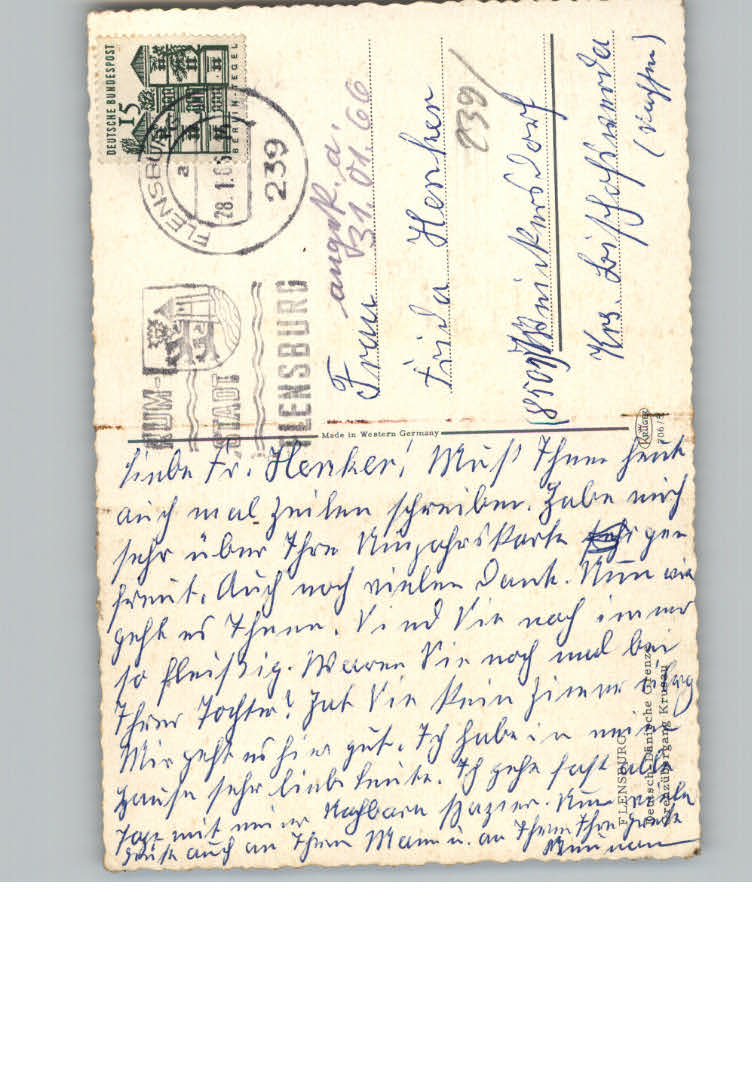 DEUTSCHE BUNDESPOST
15
BERLIN-TEGEL
FLENSBURG
a
28.1.66
239
RUM-
STADT
FLENSBURG
angek. a.
31.01.66
Frau
Frida Henker
239
(8509)
Krs. Bischofswerda
(Sachsen)
Made in Western Germany
Krüger
706/
Liebe Fr. Henker! Muß Ihnen heute
auch mal Zeilen schreiben. Habe mich
sehr über Ihre Neujahrskarte ge
freut. Auch noch vielen Dank. Nun wie
geht es Ihnen. Sind Sie noch immer
so fleißig. Waren Sie noch mal bei
Ihrer Tochter? Hat Sie kein Zimmer übrig
Mir geht es hier gut. Ich habe in meinem
Hause sehr liebe Leute. Ich gehe fast alle
Tage mit meiner Nachbarn spazier. Nun viele
Grüße auch an Ihren Mann u. an Ihnen Ihre
FLENSBURG
Deutsch-Dänische Grenze
Grenzübergang Krusau